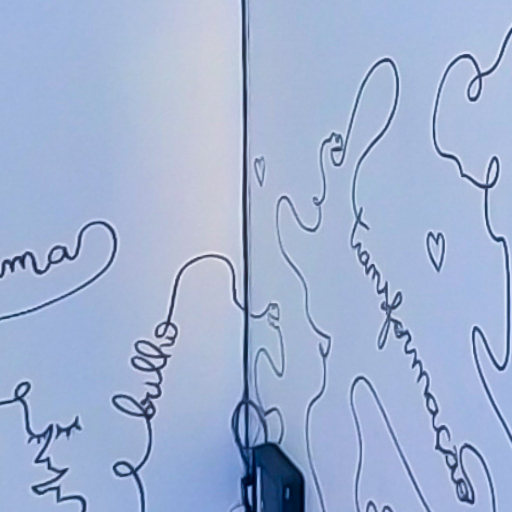 ma
brilho
transformação